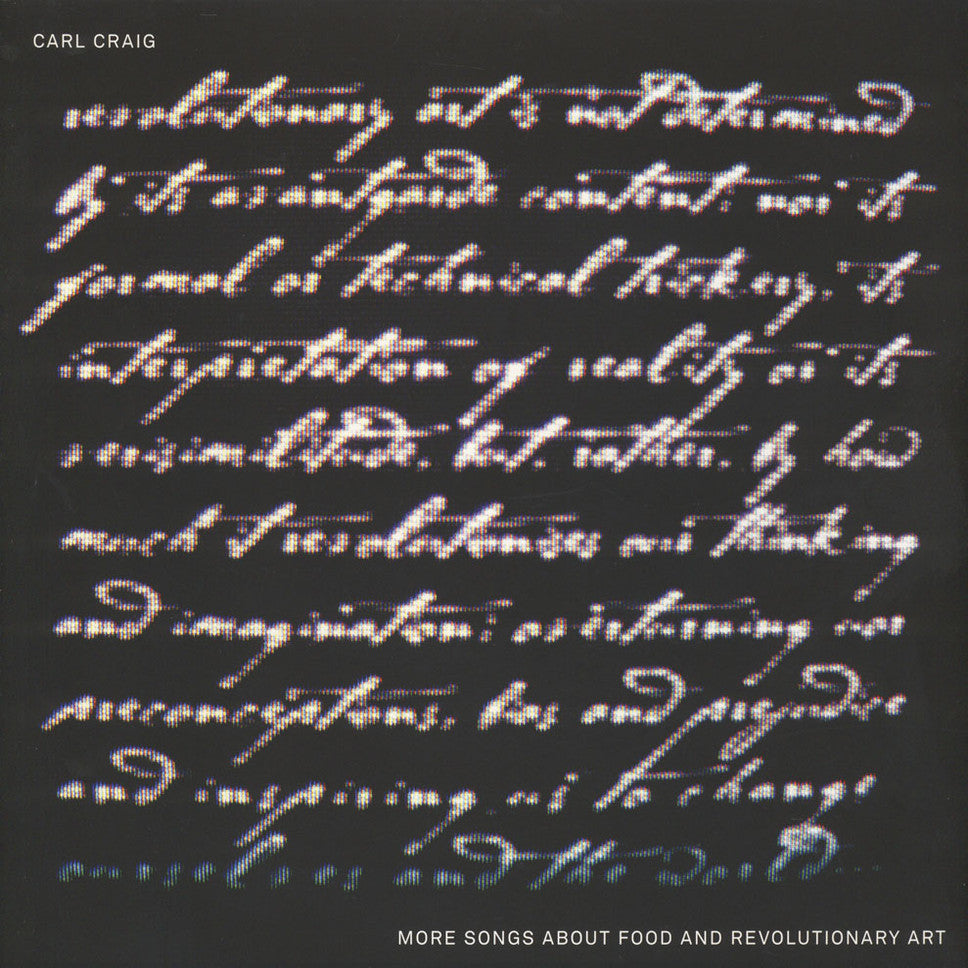 CARL CRAIG
revolutionary art is not determined
by its avantgarde content: nor its
formal or technical trickery, its
interpretation of reality or its
verisimilitude, but, rather, by how
much it revolutionises our thinking
and imagination: overturning our
preconceptions, bias and prejudice
and inspiring us to change
ourselves and the world
MORE SONGS ABOUT FOOD AND REVOLUTIONARY ART